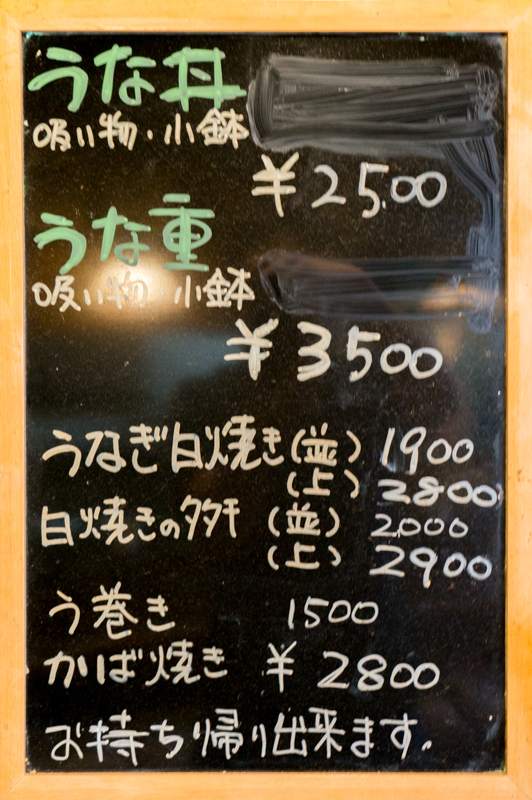 うな丼
吸い物・小鉢
¥2500
うな重
吸い物 小鉢
¥3500
うなぎ白焼き(並) 1900
(上) 2800
白焼きのタタキ (並) 2000
(上) 2900
う巻き 1500
かば焼き ¥2800
お持ち帰り出来ます。